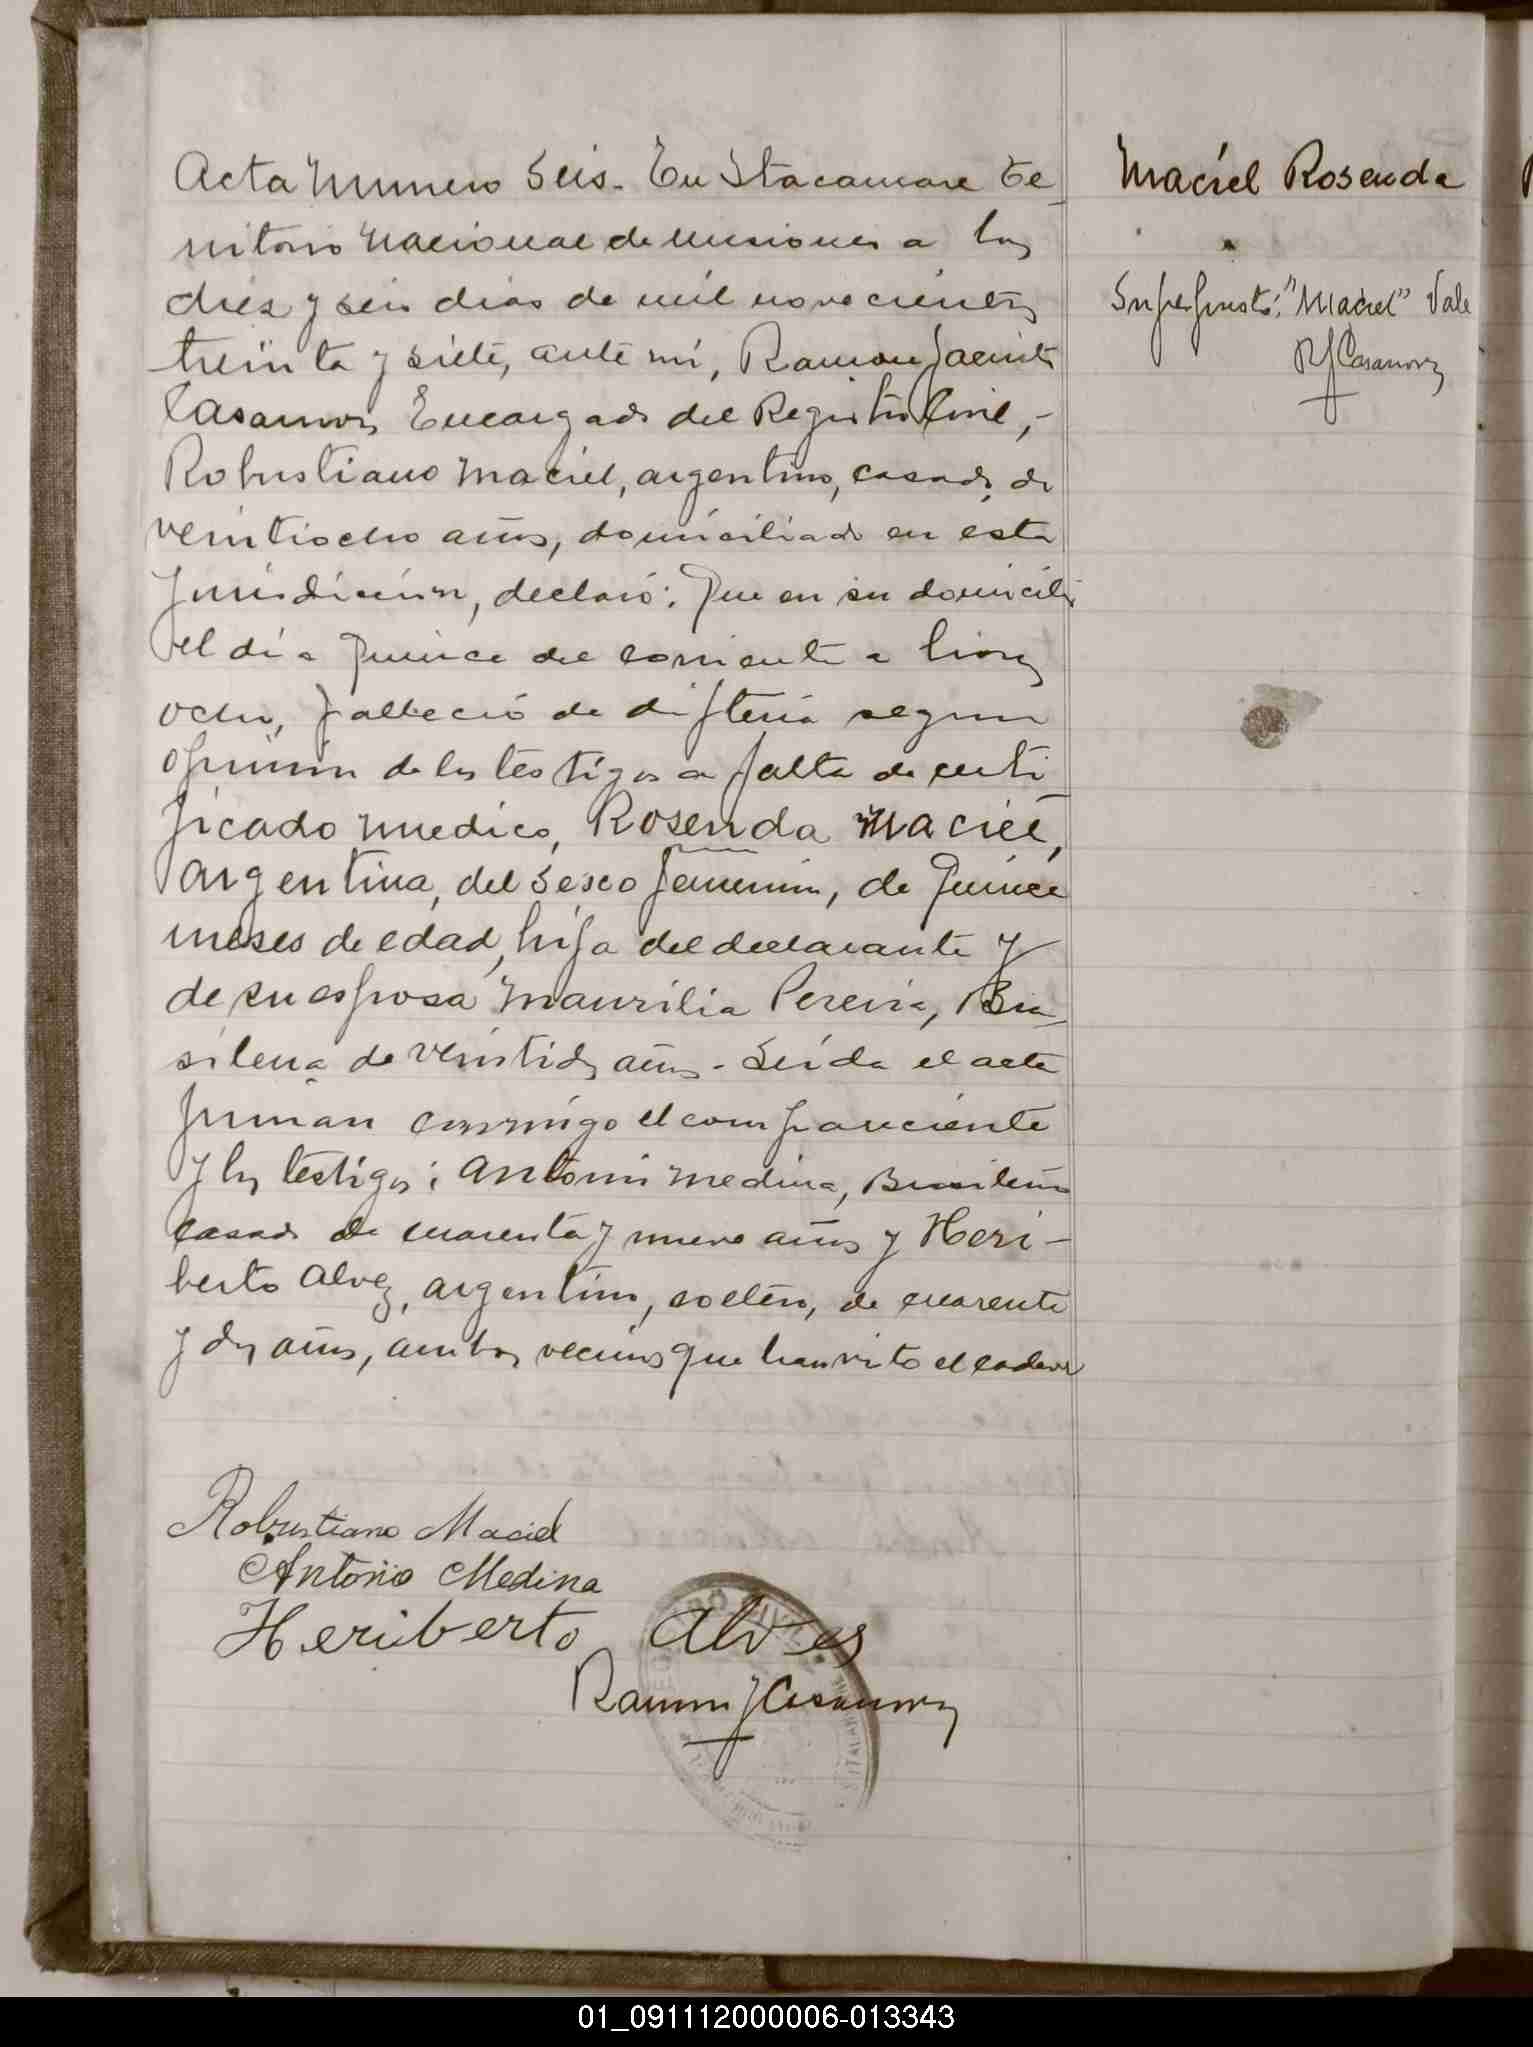 Acta Numero Seis. En Itacaruare Te-
rritorio Nacional de Misiones a los
diez y seis dias de mil novecientos
treinta y siete, ante mí, Ramon Jacinto
Casanova Encargado del Registro Civil,-
Robustiano Maciel, argentino, casado, de
veintiocho años, domiciliado en esta
Jurisdicción, declaró: Que en su domicilio
el día quince del corriente a horas
ocho, falleció de difteria segun
opinion de los testigos a falta de certi-
ficado medico, Rosenda Maciel,
argentina, del sexo femenino, de quince
meses de edad, hija del declarante y
de su esposa Maurilia Pereira, Bra-
silena de veintidos años. Leída el acta
firman conmigo el compareciente
y los testigos: Antonio Medina, Brasileño
casado de cuarenta y nueve años y Heri-
berto Alvez, argentino, soltero, de cuarenta
y dos años, ambos vecinos que han visto el cadaver
Robustiano Maciel
Antonio Medina
Heriberto Alves
Ramon J Casanova
Maciel Rosenda
Superpuesto: "Maciel" Vale
RJCasanova
01_091112000006-013343